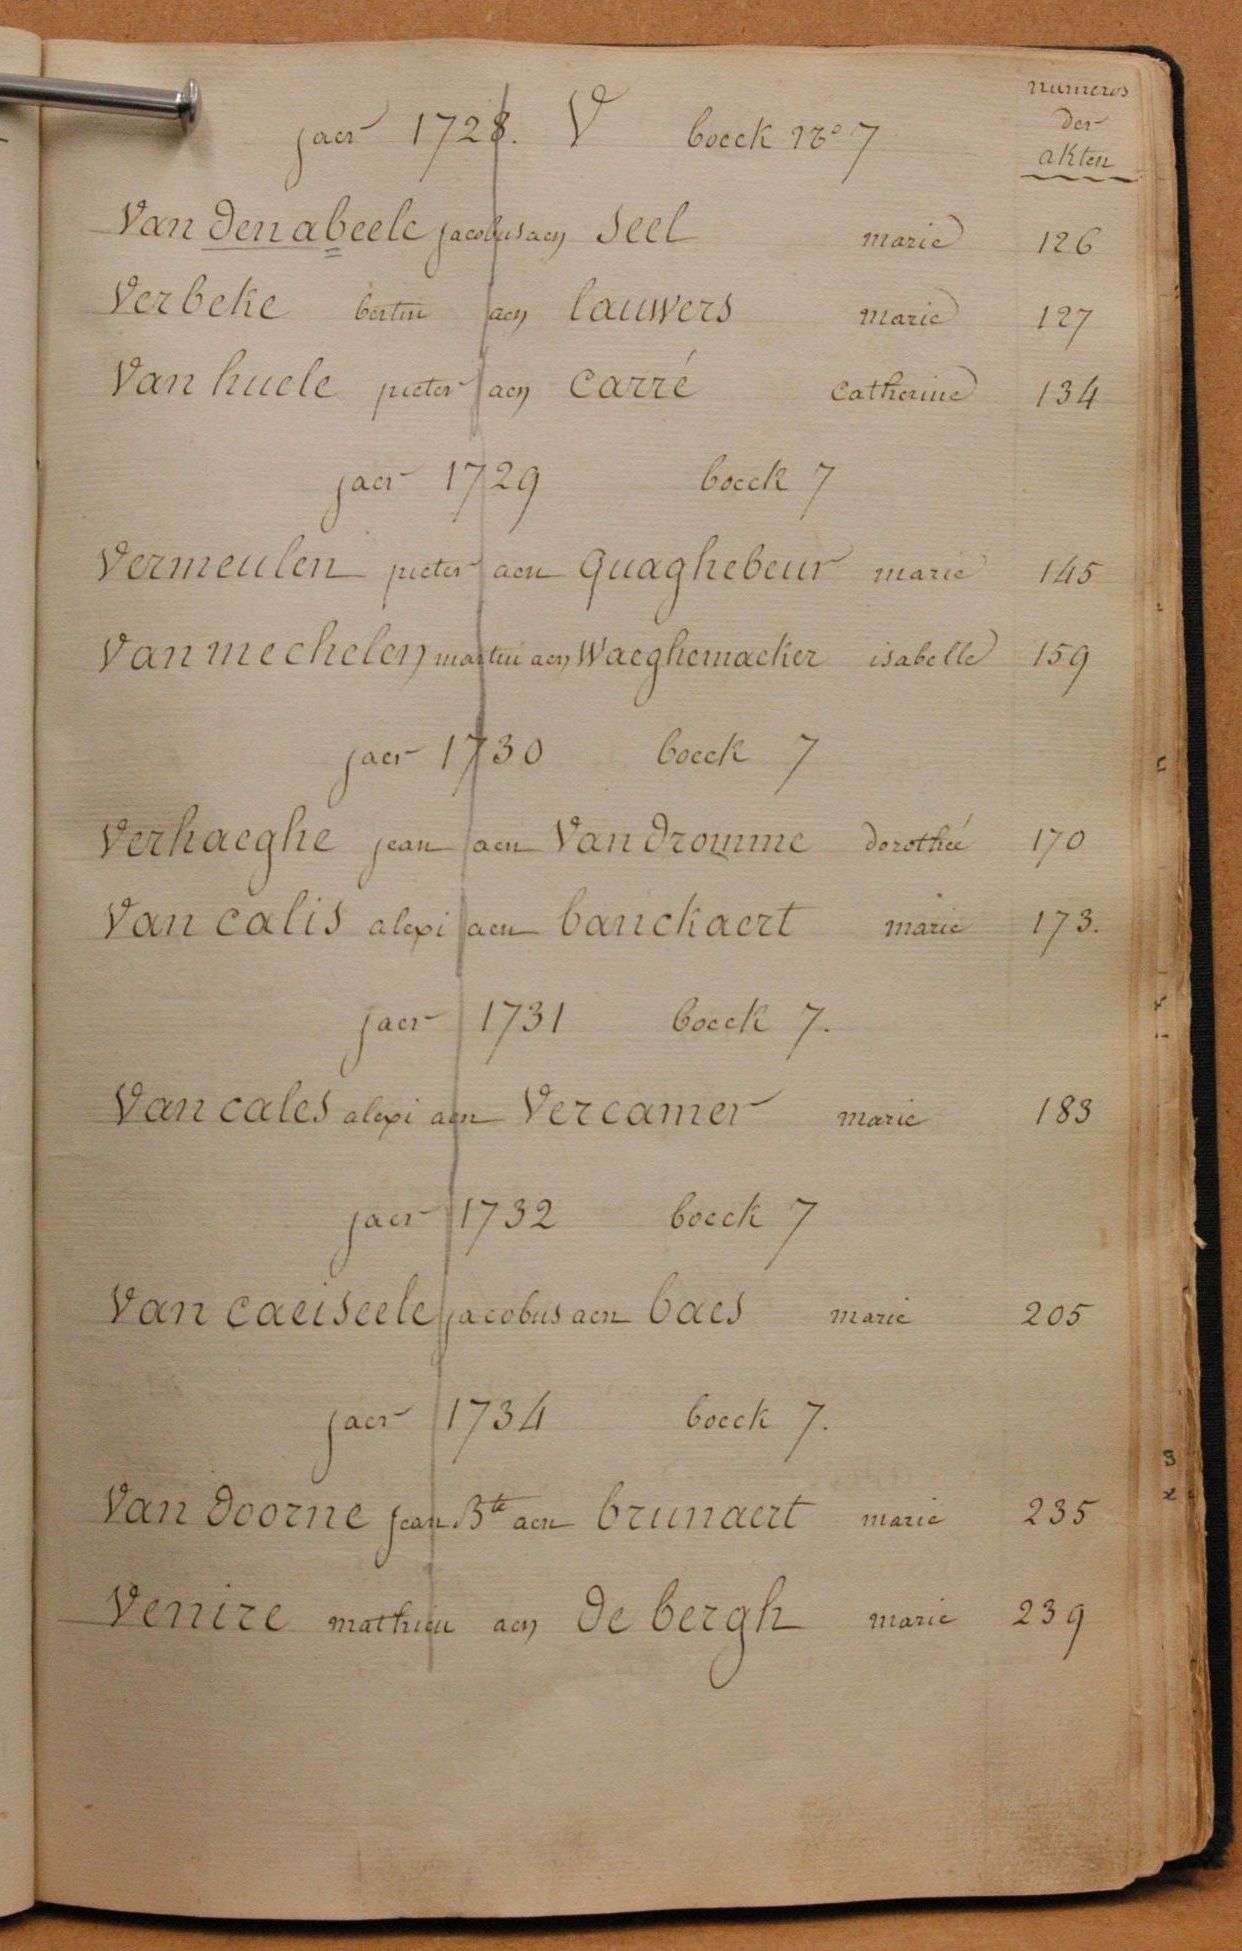 numeros
der
akten
jaer 1728. V boeck no 7
Van den abeele jacobus aen Seel marie 126
Verbeke bertin aen lauwers marie 127
Van huele pieter aen Carré Catherine 134
jaer 1729 boeck 7
Vermeulen pieter aen quaghebeur marie 145
Van mechelen martin aen Waeghemaeker isabelle 159
jaer 1730 boeck 7
Verhaeghe jean aen Van dromme dorothée 170
Van calis alexi aen banckaert marie 173.
jaer 1731 boeck 7.
Van cales alexi aen Vercamer marie 183
jaer 1732 boeck 7
Van caeiseele jacobus aen baes marie 205
jaer 1734 boeck 7.
Van doorne jean Bte aen brunaert marie 235
Venire mathieu aen de bergh marie 239